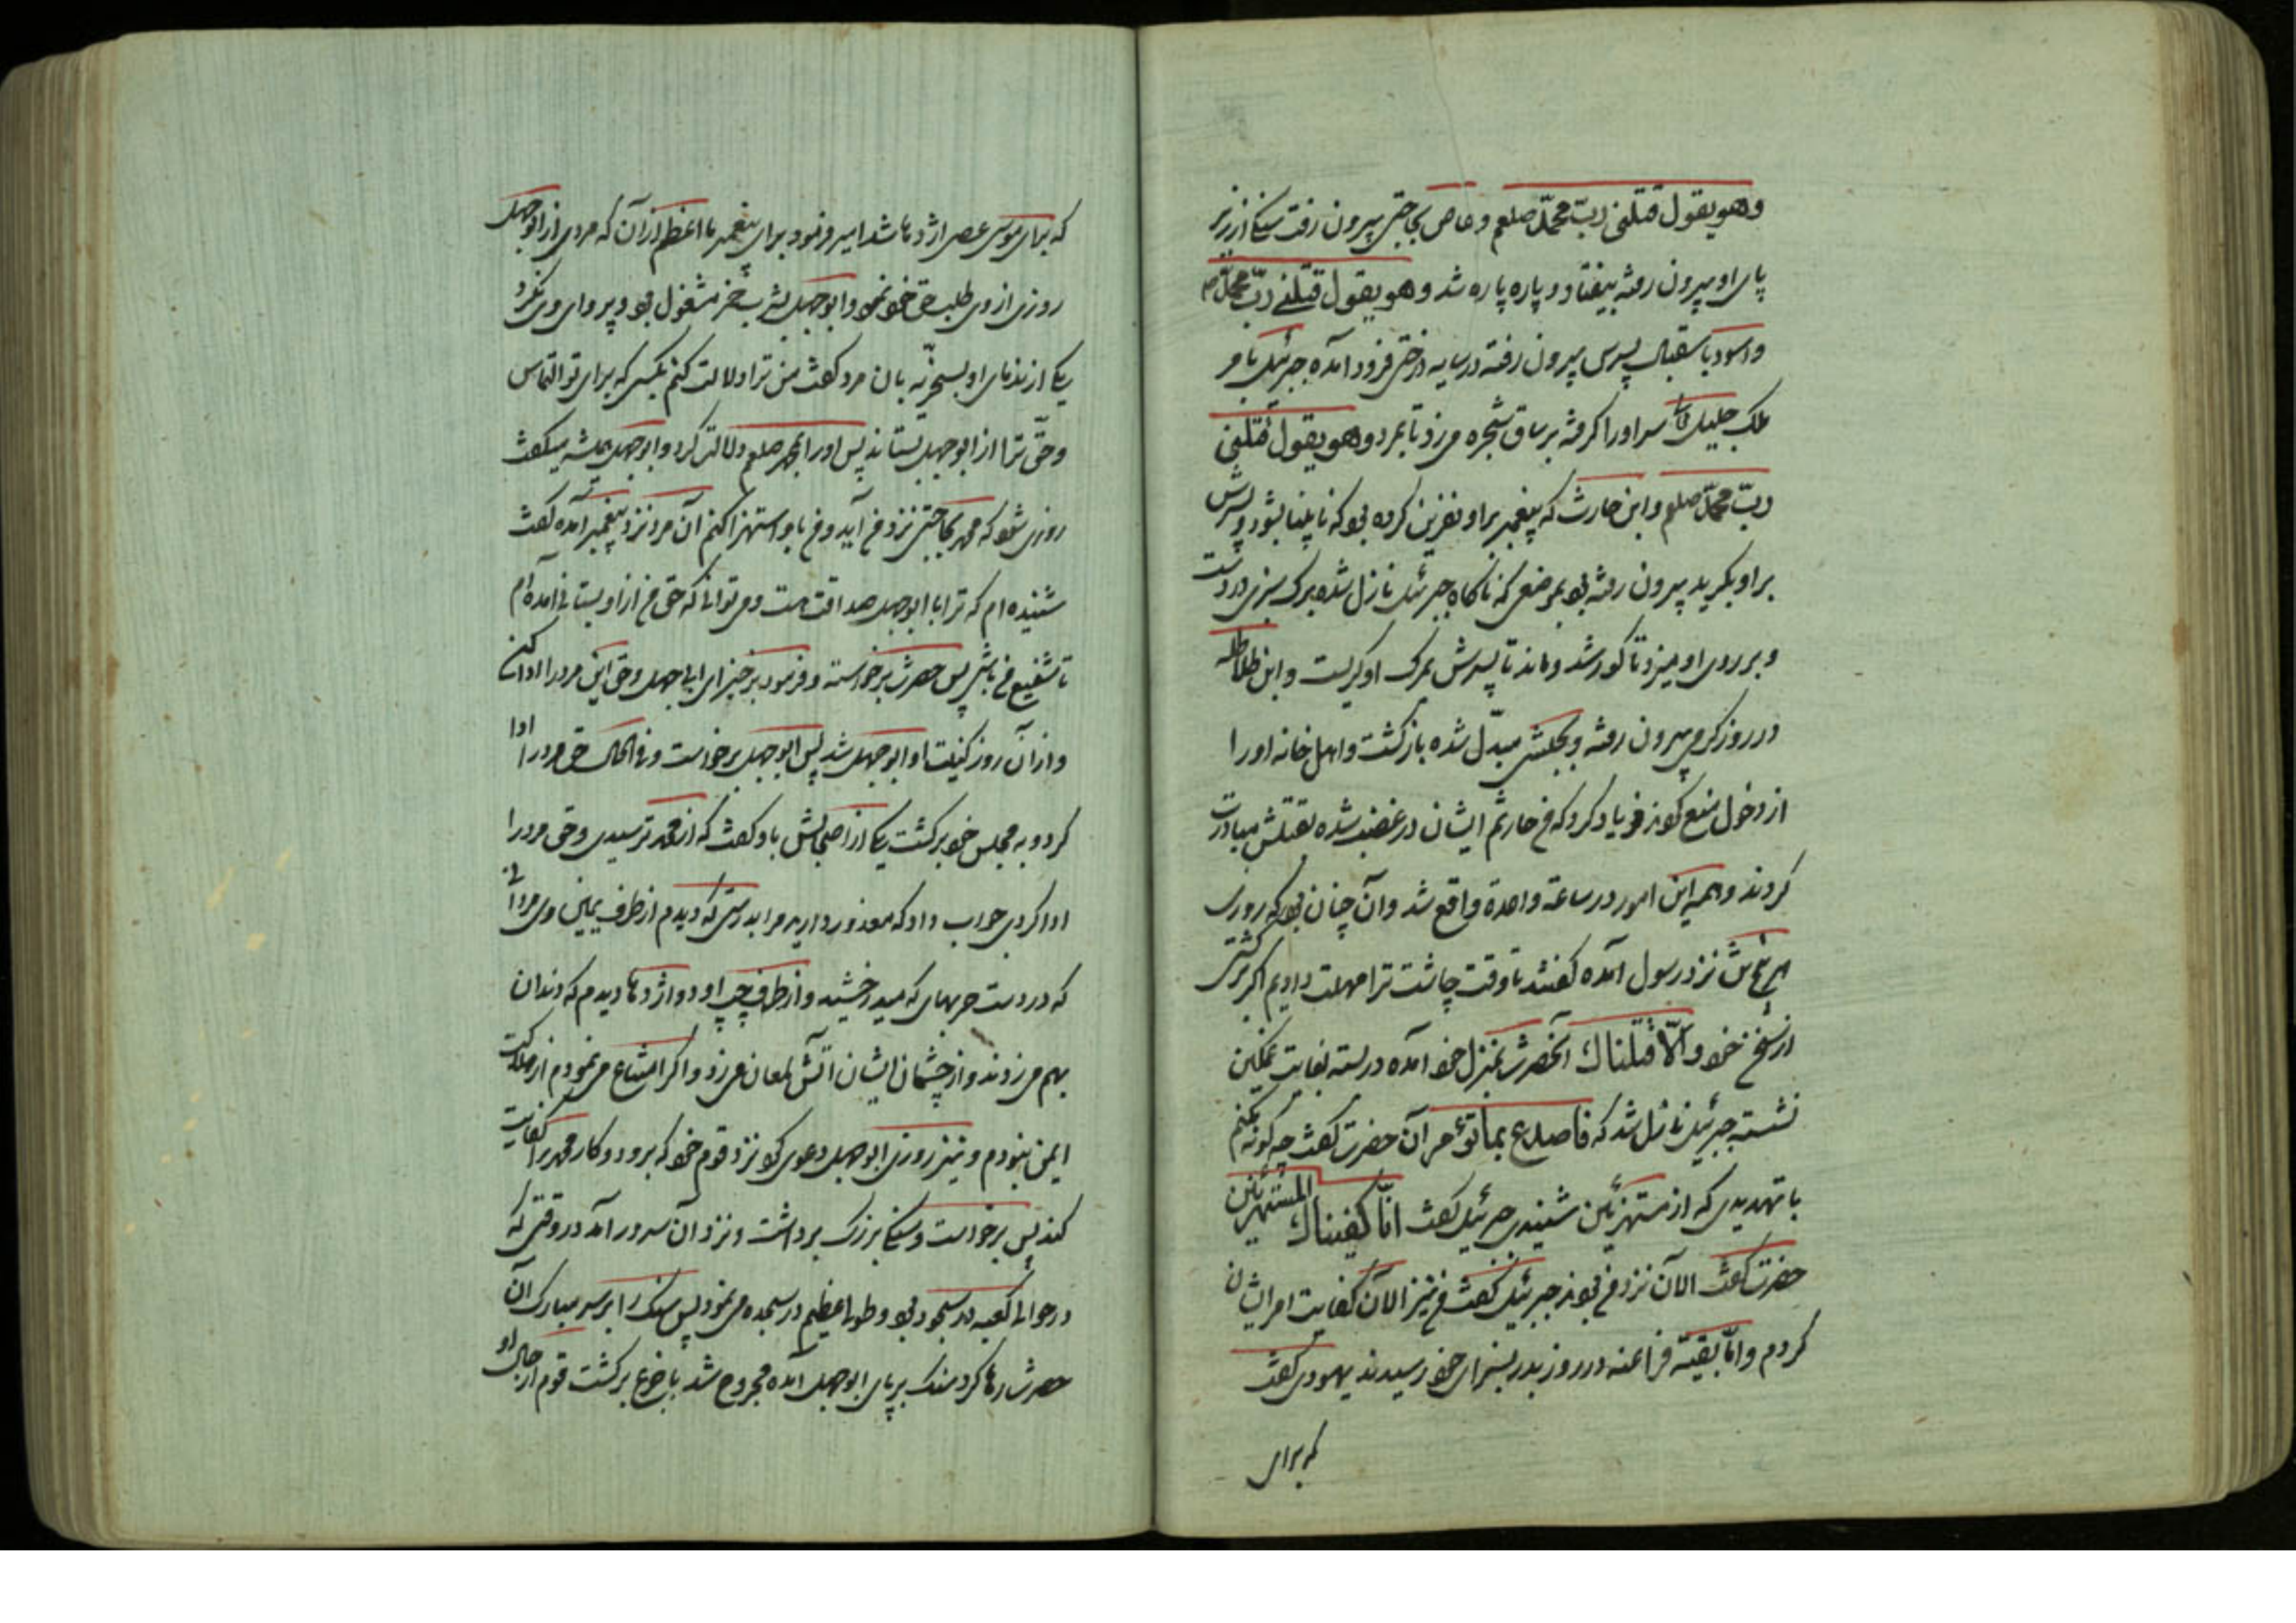 وهو یقول قتلنی ربّ محمّد صلعم وعاص بحاجتی بیرون رفت سنکی از زیر
پای او بیرون رفته بیفتاد و پاره پاره شد وهو یقول قتلنی ربّ محمّد صم
واسود باستقبال پسرش بیرون رفته در سایه درختی فرود آمده جبرئیل بامر
ملک جلیل سر او را کرفته بر ساق شجره میزد تا بمرد وهو یقول قتلنی
ربّ محمّد صلعم وابن حارث که پیغمبر براو نفرین کرده بود که نابینا بشود وپسرش
براو بکرید بیرون رفته بود بموضعی که ناکاه جبرئیل نازل شده برک سبزی در دست
و بر روی او میزد تا کور شد وماند تا پسرش بمرک او کریست وابن طلاطله
در روز کرم بیرون رفته و بحبشی مبدّل شده بازکشت واهل خانه او را
از دخول منع کردند فریاد کرد که من حارثم ایشان در غضب شده بقتلش مبادرت
کردند وهمه این امور در ساعة واحدة واقع شد وآن چنان بود که روزی
این پنج شش نزد رسول آمده کفتند تا وقت چاشت ترا مهلت دادیم اکر برکشتی
از سخن خود والّا قتلناک آنحضرت بمنزل خود آمده در بسته بغایت غمکین
نشسته جبرئیل نازل شد که فاصدع بما تؤمر آن حضرت کفت چه کونه کنم
با تهدیدی که از مستهزئین شنیدی جبرئیل کفت انّا کفیناک المستهزئین
حضرت کفت الآن نزد من بودند جبرئیل کفت من نیز الآن کفایت امر ایشان
کردم وامّا بقیّه فراعنه در روز بدر بسزای خود رسیدند یهودی کفت
که برای
که برای موسی عصی اژدها شد امیر فرمود برای پیغمبر ما اعظم از آن که مردی از ابوجهل
روزی از وی طلب حق خود نمود وابوجهل بشرب خمر مشغول بود و پروای وی نکرد
یکی از ندمای او بسخریّه بان مرد کفت من ترا دلالت کنم بکسی که برای تو التماس
وحقّ ترا از ابوجهل بستاند پس او را بمحمد صلعم دلالت کرد وابوجهل همیشه میکفت
روزی شود که محمد بحاجتی نزد من آید ومن باو استهزا کنم آن مرد نزد پیغمبر آمده کفت
شنیده ام که ترا با ابوجهل صداقت هست ومی توانی که حق من از او بستانی آمده ام
تا شفیع من باشی پس حضرت برخواسته وفرمود برخیز ای اباجهل وحق این مرد را ادا کن
واز آن روز کنیت او ابوجهل شد پس ابوجهل برخواست وفی الحال حق مرد را ادا
کرد و به مجلس خود برکشت یکی از اصحابش باو کفت که از محمد ترسیدی وحق مرد را
ادا کردی جواب داد که معذور دارید مرا بدرستی که دیدم از طرف یمین وی مردانی
که در دست حربهای که میدرخشید واز طرف چپ او دو اژدها دیدم که دندان
بهم می زدند واز چشمان ایشان آتش لمعان میزد واکر امتناع می نمودم از هلاکت
ایمن نبودم و نیز روزی ابوجهل دعوی کرد نزد قوم خود که برود و کار محمد را کفایت
کند پس برخواست وسنکی بزرک برداشت ونزد آن سرور آمد در وقتی که
در حوالی کعبه در سجود بود وطولی عظیم در سجده می نمود پس سنک را بر سر مبارک آن
حضرت رها کرد سنک بر پای ابوجهل آمده مجروح شد با جزع برکشت قوم از حال او